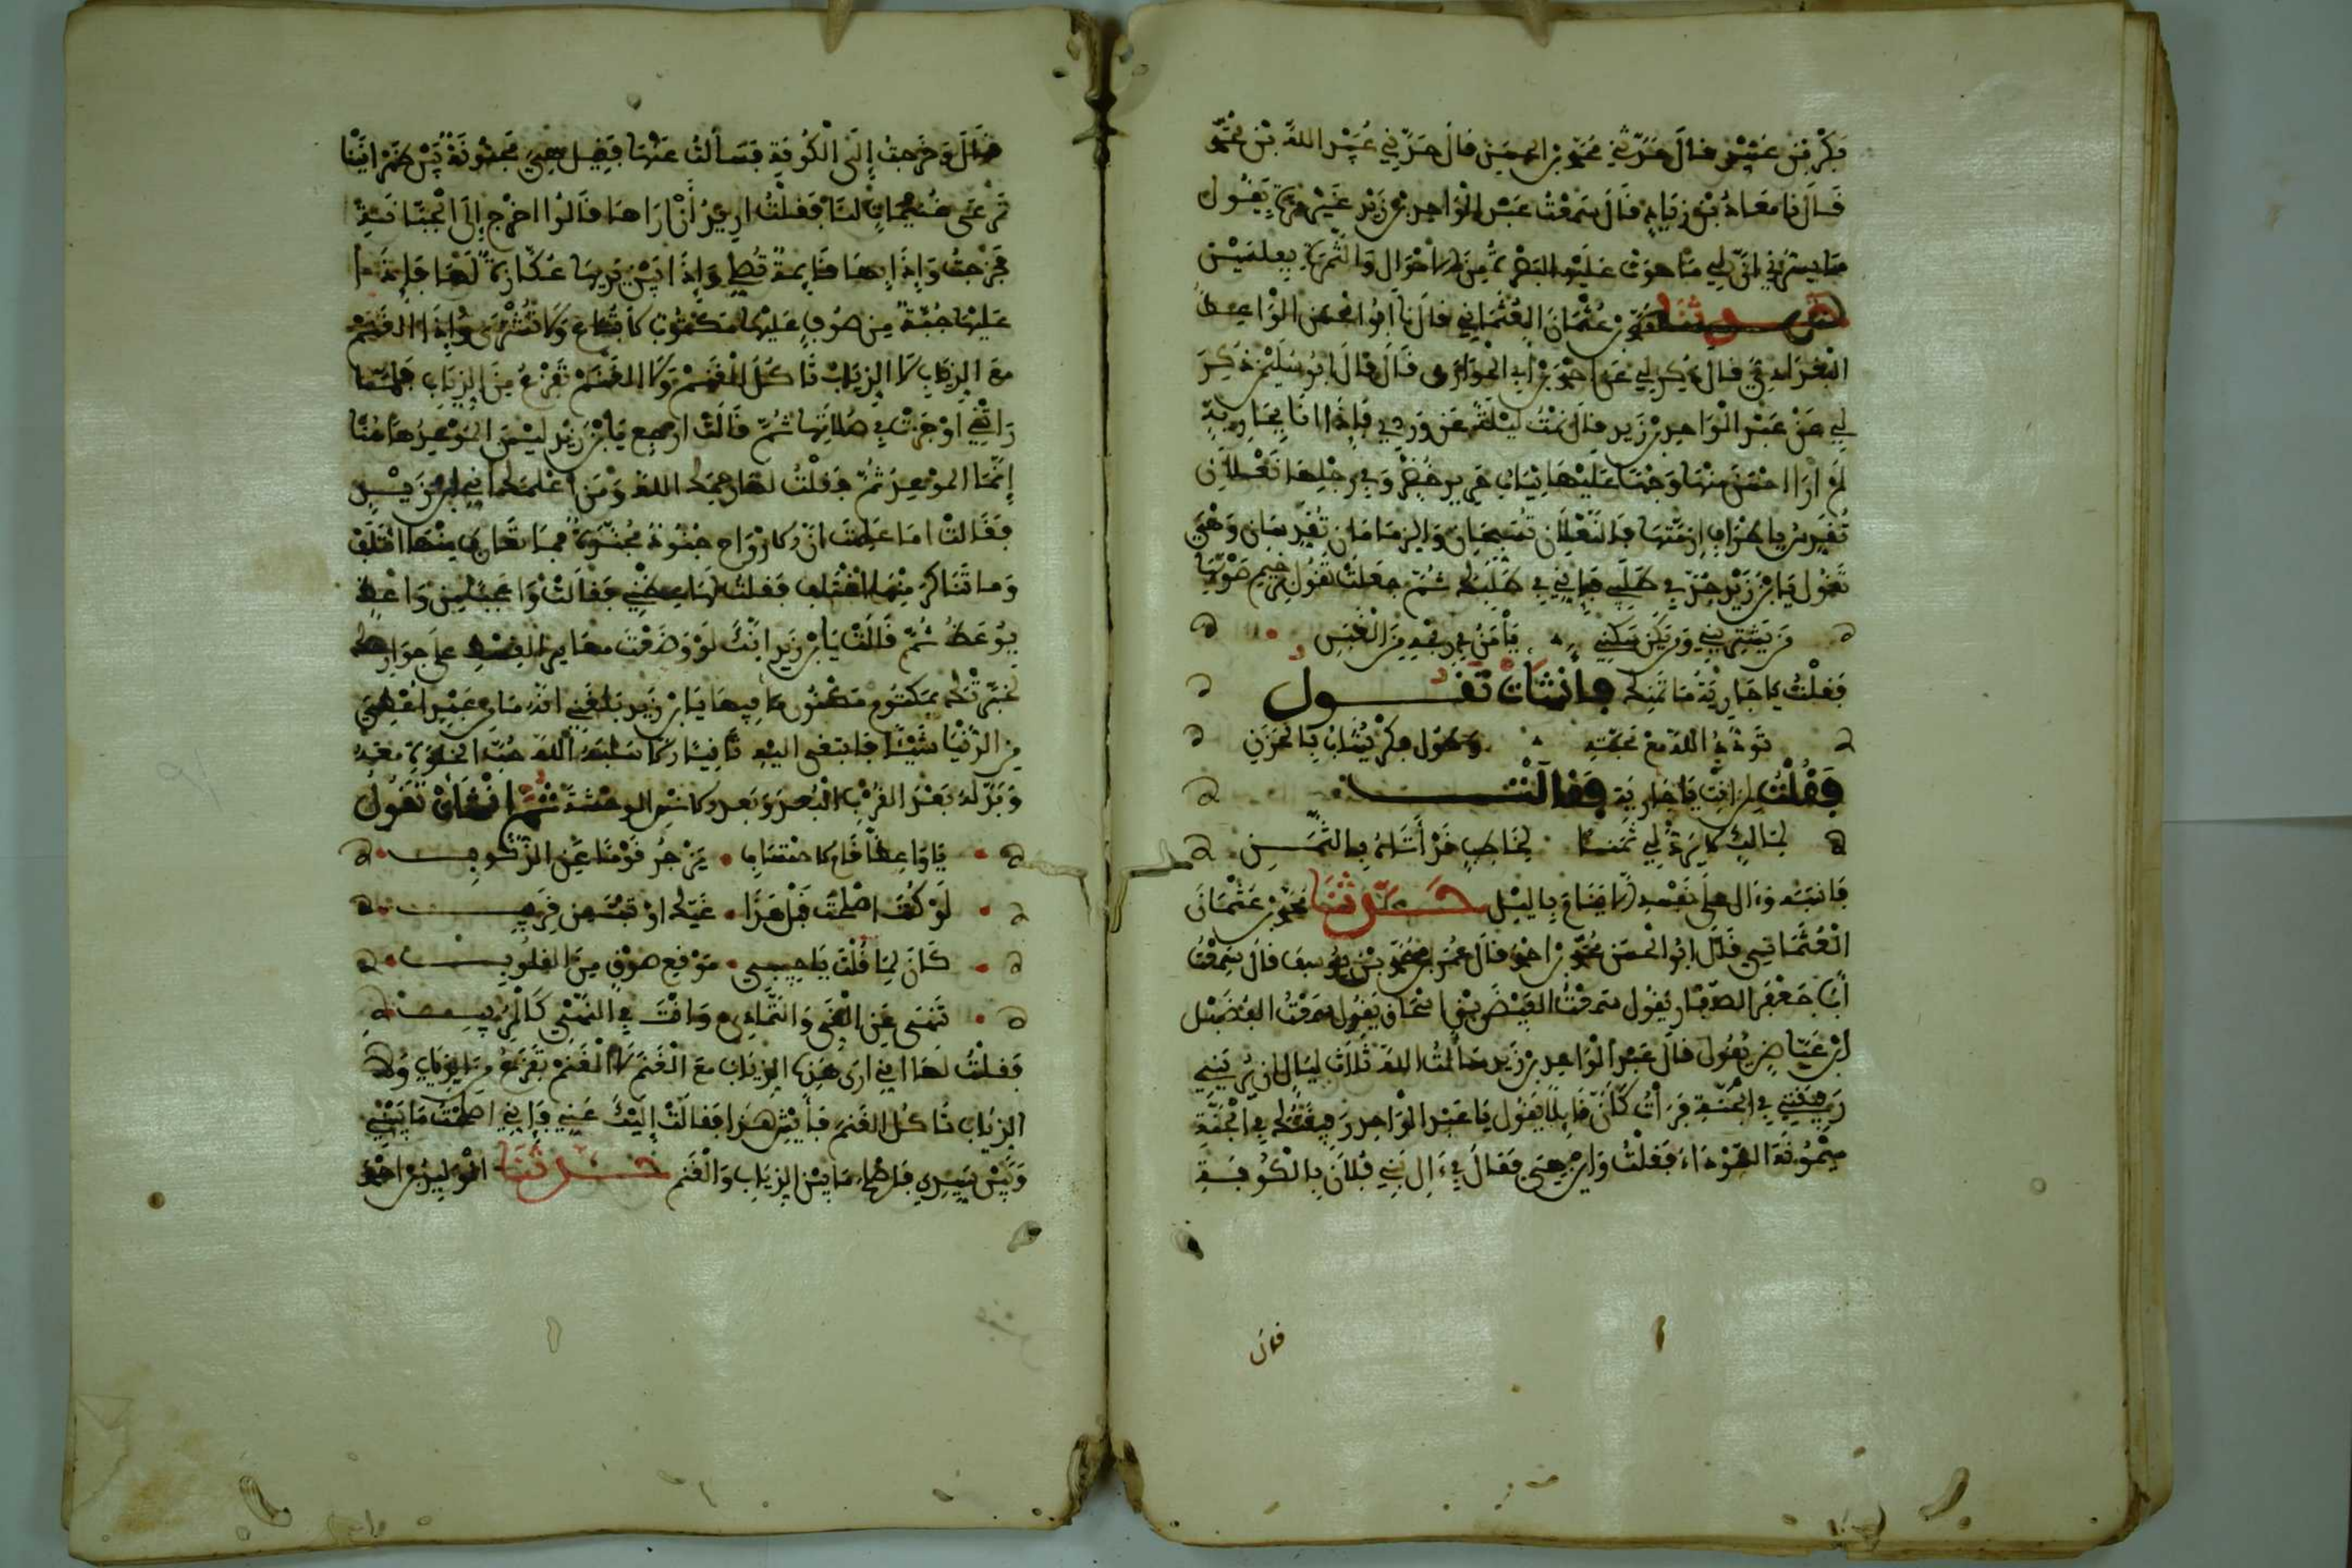 بَكْرِ بْنِ عُبَيْدٍ قَالَ حَدَّثَنِي مُحَمَّدُ بْنُ الحُسَيْنِ قَالَ حَدَّثَنِي عُبَيْدُ اللهِ بْنُ مُحَمَّد
قَالَ نَا مُعَاذُ بْنُ زِيَادٍ قَالَ سَمِعْتُ عَبْدَ الْوَاحِدِ بْنَ زَيْدٍ غَيْرَ مَرَّةٍ يَقُولُ
مَا يَسُرُّنِي أَنَّ لِي مَا حَوَتْ عَلَيْهِ البَصْرَةُ مِنَ الأَمْوَالِ وَالثَّمَرَةِ بِفِلْسَيْنِ
حدثنا محمد بْنُ عُثْمَانَ العُثْمَانِي قَالَ نَا أَبُو الحُسَنِ الْوَاعِظُ
الْبَغْدَادِيُّ قَالَ ذُكِرَ لِي عَنْ أَحْمَدَ بْنِ أَبِي الْحَوَارِي قَالَ قَالَ أَبُو سُلَيْمَانَ ذُكِرَ
لِي عَنْ عَبْدِ الْوَاحِدِ بْنِ زَيْدٍ قَالَ نِمْتُ لَيْلَةً عَنْ وِرْدِي فَإِذَا أَنَا بِجَارِيَةٍ
لَمْ أَرَ أَحْسَنَ مِنْهَا وَجْهًا عَلَيْهَا ثِيَابُ حَرِيرٍ خُضْرٌ وَفِي رِجْلِهَا نَعْلَانِ
تُقَدِّسُ بِأَطْرَافِ أَزِمَّتِهَا فَالنَّعْلَانِ تُسَبِّحَانِ وَالزِّمَامَانِ تُقَدِّسَانِ وَهْيَ
تَقُولُ يَا بْنَ زَيْدٍ جِدَّ فِي طَلَبِي فَإِنِّي فِي طَلَبِكَ ثُمَّ جَعَلَتْ تَقُولُ بِرَخِيمِ صَوْتِهَا
مَنْ يَشْتَرِينِي وَمَنْ يَكُنْ سَكَنِي يَأْمَنُ فِي رِبْحِهِ مِنَ الْغَبَنِ
فَقُلْتُ يَا جَارِيَةُ مَا ثَمَنُكِ فَأَنْشَأَتْ تَقُولُ
تَوَدُّدُ اللهِ مَعْ مَحَبَّتِهِ وَطُولُ فِكْرٍ يُشَابُ بِالْحَزَنِ
فَقُلْتُ لِمَنْ أَنْتِ يَا جَارِيَةُ فَقَالَتْ
لِمَالِكٍ لَا يَرُدُّ لِي ثَمَنًا لِخَاطِبٍ قَدْ أَتَاهُ بِالثَّمَنِ
فَانْتَبَهَ وَءَالَى عَلَى نَفْسِهِ أَلَّا يَنَامَ بِاللَّيْلِ حَدَّثَنَا مُحَمَّدُ بْنُ عُثْمَانَ
الْعُثْمَانِي قَالَ أَبُو الْحَسَنِ مُحَمَّدُ بْنُ أَحْمَدَ قَالَ عُمَرُ بْنُ مُحَمَّدِ بْنِ يُوسُفَ قَالَ سَمِعْتُ
أَبَا جَعْفَرٍ الصَّفَّارَ يَقُولُ سَمِعْتُ الفَيْضَ بْنَ إِسْحَاقَ يَقُولُ سَمِعْتُ الْفُضَيْلَ
ابْنَ عِيَاضٍ يَقُولُ قَالَ عَبْدُ الْوَاحِدِ بْنُ زَيْدٍ سَأَلْتُ اللهَ ثَلَاثَ لَيَالٍ أَنْ يُرِيَنِي
رَفِيقِي فِي الْجَنَّةِ فَرَأَيْتُ كَأَنَّ قَائِلًا يَقُولُ يَا عَبْدَ الْوَاحِدِ رَفِيقُكَ فِي الْجَنَّةِ
مَيْمُونَةُ السَّوْدَاءُ فَقُلْتُ وَأَيْنَ هِيَ فَقَالَ فِي ءَالِ بَنِي فُلَانٍ بِالْكُوفَةِ
قال
قَالَ وَخَرَجْتُ إِلَى الْكُوفَةِ فَسَأَلْتُ عَنْهَا فَقِيلَ هِيَ مَجْنُونَةٌ بَيْنَ ظَهْرَانَيْنَا
تَرْعَى غُنَيْمَاتٍ لَنَا فَقُلْتُ أُرِيدُ أَنْ أَرَاهَا قَالُوا اخْرُجْ إِلَى الْجَبَّانَةِ
فَخَرَجْتُ وَإِذَا هَا قَائِمَةٌ تُصَلِّي وَإِذَا بَيْنَ يَدَيْهَا عُكَّازَةٌ لَهَا فَإِذَا
عَلَيْهَا جُبَّةٌ مِنْ صُوفٍ عَلَيْهَا مَكْتُوبٌ لَا تُبَاعُ وَلَا تُشْتَرَى وَإِذَا الْغَنَمُ
مَعَ الذِّيَابِ لَا الذِّيَابُ تَأْكُلُ الْغَنَمَ وَلَا الْغَنَمُ تَفْزَعُ مِنَ الذِّيَابِ فَلَمَّا
رَأَتْنِي أَوْجَزَتْ فِي صَلَاتِهَا ثُمَّ قَالَتْ ارْجِعْ يَا بْنَ زَيْدٍ لَيْسَ الْمَوْعِدُ هَاهُنَا
إِنَّمَا الْمَوْعِدُ ثَمَّ فَقُلْتُ لَهَا رَحِمَكِ اللهُ وَمَنْ أَعْلَمَكِ أَنِّي ابْنُ زَيْدٍ
فَقَالَتْ أَمَا عَلِمْتَ أَنَّ الأَرْوَاحَ جُنُودٌ مُجَنَّدَةٌ فَمَا تَعَارَفَ مِنْهَا ائْتَلَفَ
وَمَا تَنَاكَرَ مِنْهَا اخْتَلَفَ فَقُلْتُ لَهَا عِظِينِي فَقَالَتْ وَا عَجَبًا مِنْ وَاعِظٍ
يُوعَظُ ثُمَّ قَالَتْ يَا بْنَ زَيْدٍ إِنَّكَ لَوْ وَضَعْتَ مَعَايِيرَ الْقِسْطِ عَلَى جَوَارِحِكَ
لَخَبَّرَتْكَ بِمَكْتُومِ مَكْنُونِ مَا فِيهَا يَا بْنَ زَيْدٍ بَلَغَنِي أَنَّهُ مَا مِنْ عَبْدٍ أُعْطِيَ
مِنَ الدُّنْيَا شَيْئًا فَابْتَغَى إِلَيْهِ ثَانِيًا إِلَّا سَلَبَهُ اللهُ حُبَّ الْخَلْوَةِ مَعَهُ
وَبَدَّلَهُ بَعْدَ الْقُرْبِ الْبُعْدَ وَبَعْدَ الأُنْسِ الْوَحْشَةَ ثُمَّ أَنْشَأَتْ تَقُولُ
يَا وَاعِظًا قَامَ لِاحْتِسَابِ يَزْجُرُ قَوْمًا عَنِ الذُّنُوبِ
لَوْ كُنْتَ أَصْلَحْتَ قَبْلَ هَذَا غَيَّكَ أَوْ تُبْتَ مِنْ قَرِيبِ
كَانَ لِمَا قُلْتَ يَا حَبِيبِي مَوْقِعُ صِدْقٍ مِنَ الْقُلُوبِ
تَنْهَى عَنِ الْغَيِّ وَالتَّمَادِي وَأَنْتَ فِي النَّهْيِ كَالْمُرِيبِ
فَقُلْتُ لَهَا إِنِّي أَرَى هَذِهِ الذِّيَابَ مَعَ الْغَنَمِ لَا الْغَنَمُ تَفْزَعُ مِنَ الذِّيَابِ وَلَا
الذِّيَابُ تَأْكُلُ الْغَنَمَ فَأَيْشٍ هَذَا فَقَالَتْ إِلَيْكَ عَنِّي فَإِنِّي أَصْلَحْتُ مَا بَيْنِي
وَبَيْنَ سَيِّدِي فَأَصْلَحَ مَا بَيْنَ الذِّيَابِ وَالْغَنَمِ حَدَّثَنَا الْوَلِيدُ بْنُ أَحْمَدَ